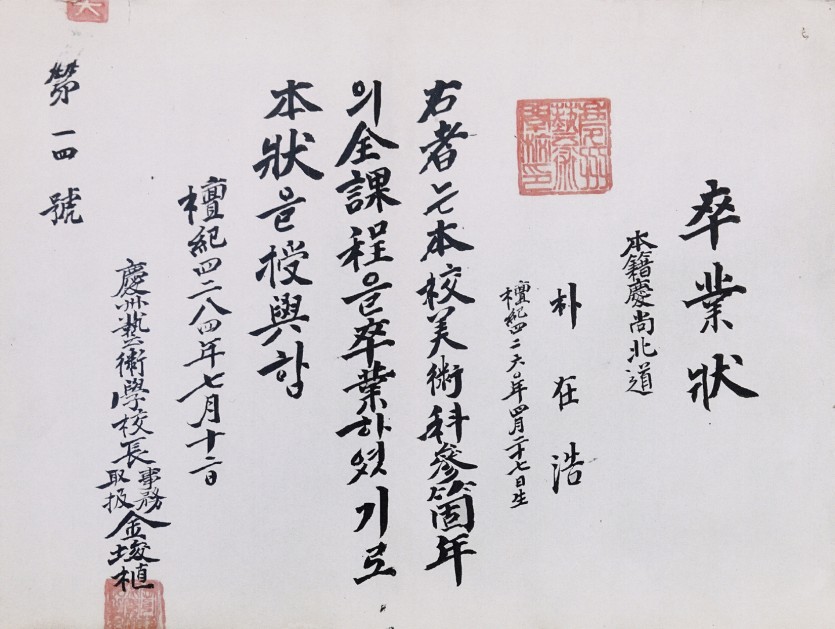 卒業狀
本籍慶尚北道
朴在浩
檀紀四二六〇年四月二十七日生
右者는本校美術科參箇年
의全課程을卒業하엿기로
本狀을授與함
檀紀四二八四年七月十二日
慶州藝術學校長
事務
取扱
金埈植
第一四號